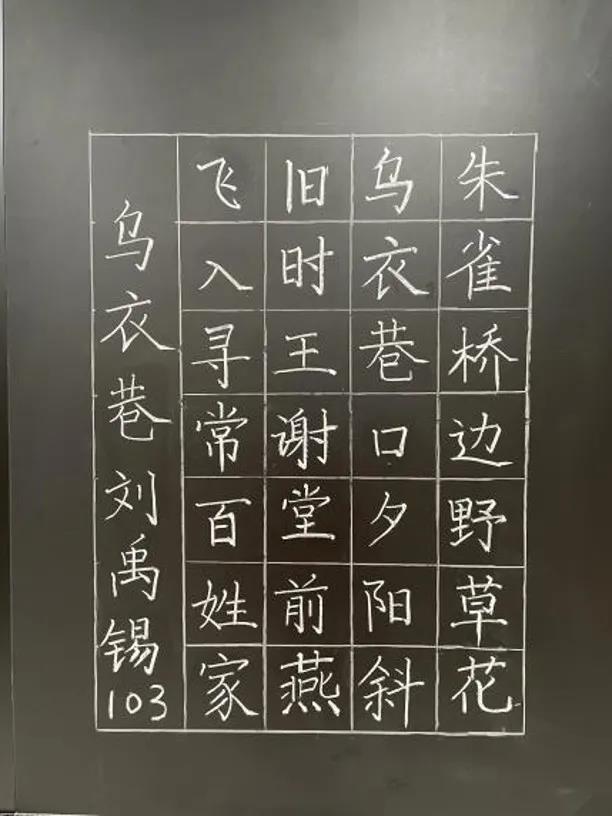 朱雀桥边野草花
乌衣巷口夕阳斜
旧时王谢堂前燕
飞入寻常百姓家
乌衣巷刘禹锡103